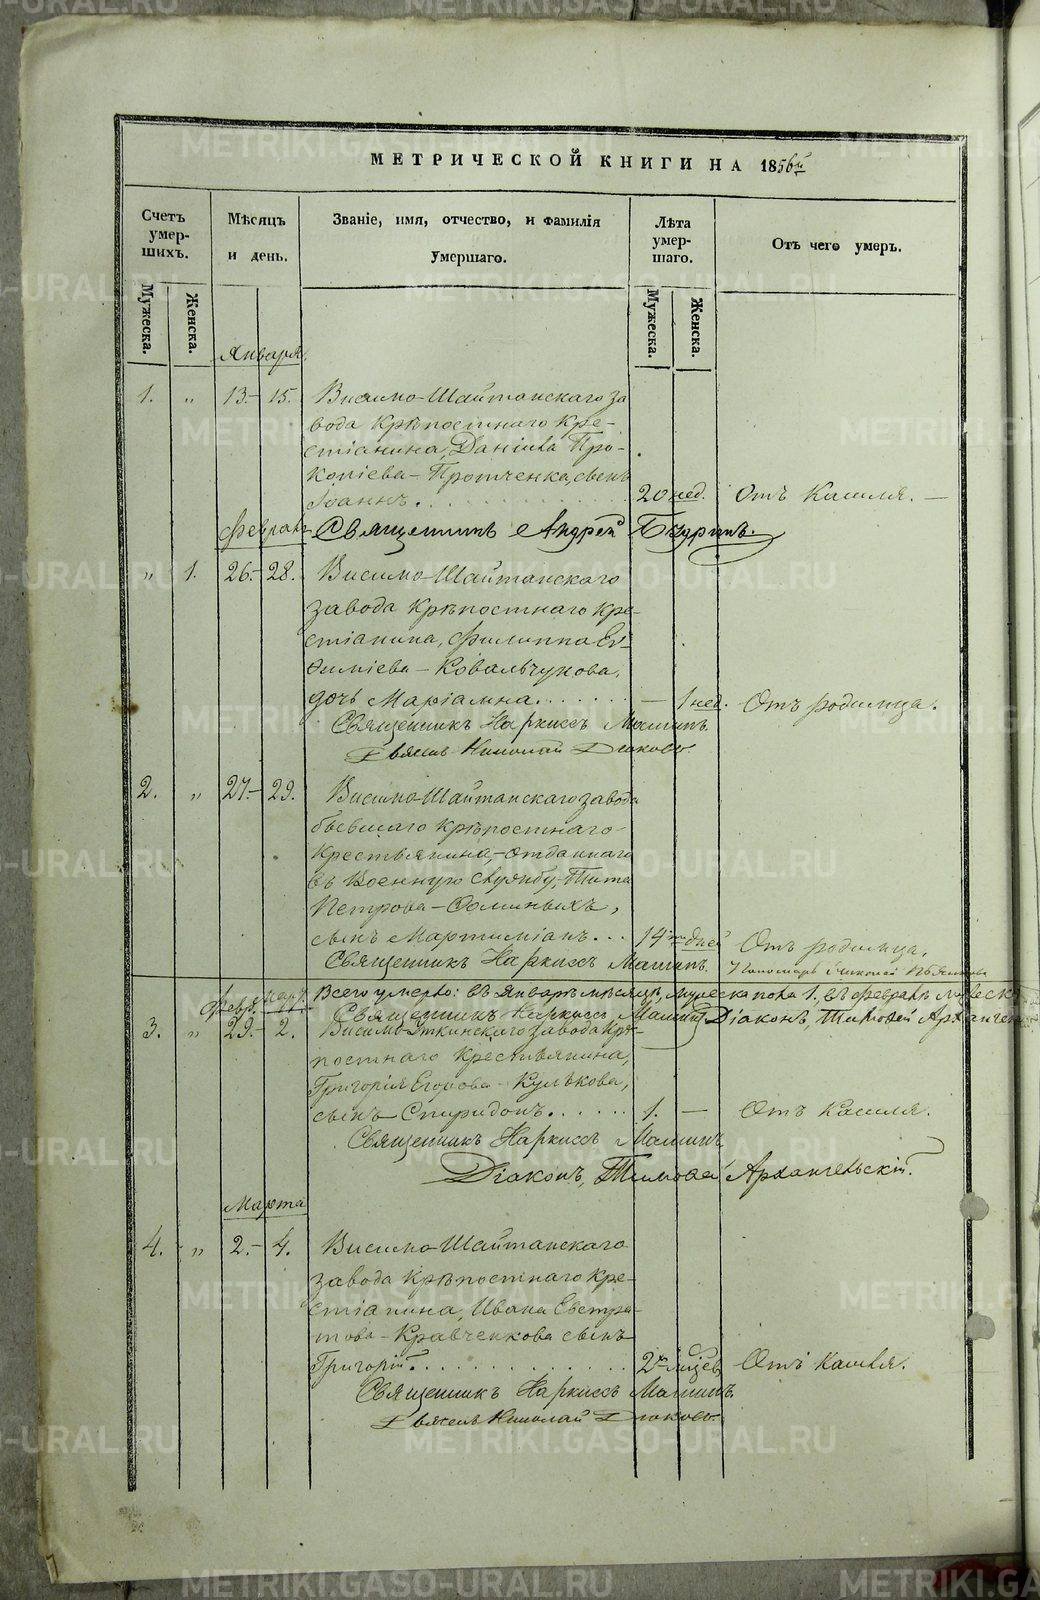 МЕТРИЧЕСКОЙ КНИГИ НА 1856й
Счетъ умершихъ.
Мѣсяцъ и день.
Званіе, имя, отчество, и фамилія Умершаго.
Лѣта умершаго.
Отъ чего умеръ.
Мужеска.
Женска.
Мужеска.
Женска.
Января
1. " 13.- 15. Висимо-Шайтанскаго за
вода Крѣпостнаго Кре-
стіанина, Даніила Про-
копіева-Протченка, сынъ
Іоаннъ. 20 нед. Отъ Кашля. —
Февраля Священникъ Андрей Бздринъ.
" 1. 26.- 28. Висимо-Шайтанскаго
завода Крѣпостнаго Кре-
стіанина, Филиппа Ев-
ѳиміева-Ковальчукова,
дочь Маріамна. — 1 нед. Отъ родимца.
Священникъ Наркиссъ Маминъ.
Николай Дюковъ.
2. " 27.- 29. Висимо-Шайтанскаго завода
бывшаго Крѣпостнаго
Крестьянина,-отданнаго
въ Военную Службу,-Тита
Петрова-Ѳоминыхъ,
сынъ Мартиміанъ... 14 дней Отъ родимца.
Священникъ Наркиссъ Маминъ.
Всего умерло: въ Январѣ мѣсяцѣ, мужеска пола 1. въ Февралѣ мужеск
Священникъ Наркиссъ Маминъ Діаконъ, Тимоѳей Арханге
Февр. Март.
3. " 29.- 2. Висимо-Уткинскаго завода Крѣ-
постнаго Крестьянина,
Григорія Егорова-Кулькова,
сынъ Спиридонъ. 1. — Отъ Кашля.
Священникъ Наркиссъ Маминъ
Діаконъ, Тимоѳей Архангельскій.
Марта
4. " 2.- 4. Висимо-Шайтанскаго
завода Крѣпостнаго Кре-
стіанина, Ивана Евстра-
това-Кравченкова сынъ
Григорій. 2 Отъ Кашля.
Священникъ Наркиссъ Маминъ.
Николай Дюковъ.
METRIKI.GASO-URAL.RU